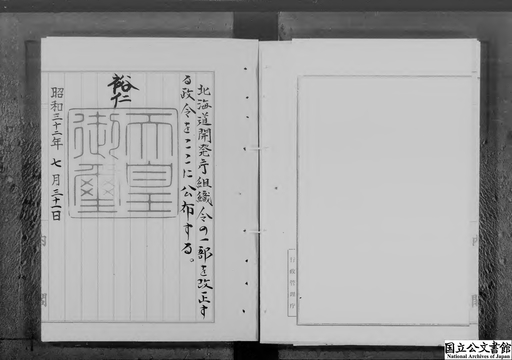 北海道開発庁組織令の一部を改正す
る政令をここに公布する。
裕仁
天皇
御璽
昭和三十二年七月三十一日
内閣
行政管理庁
内閣
国立公文書館
National Archives of Japan